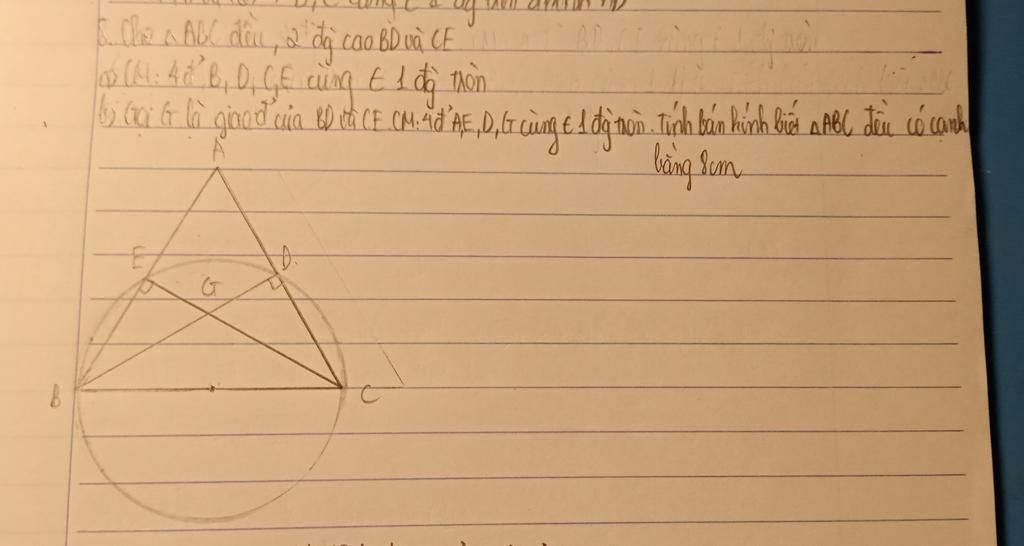 5. Cho △ABC đều, 2 đg cao BD và CE
a) CM: 4 đ' B, D, C, E cùng ∈ 1 đg tròn
b) Gọi G là giao đ' của BD và CE CM: 4 đ' A, E, D, G cùng ∈ 1 đg tròn. Tính bán kính biết △ABC đều có cạnh
bằng 8cm
A
E
D
G
B
C